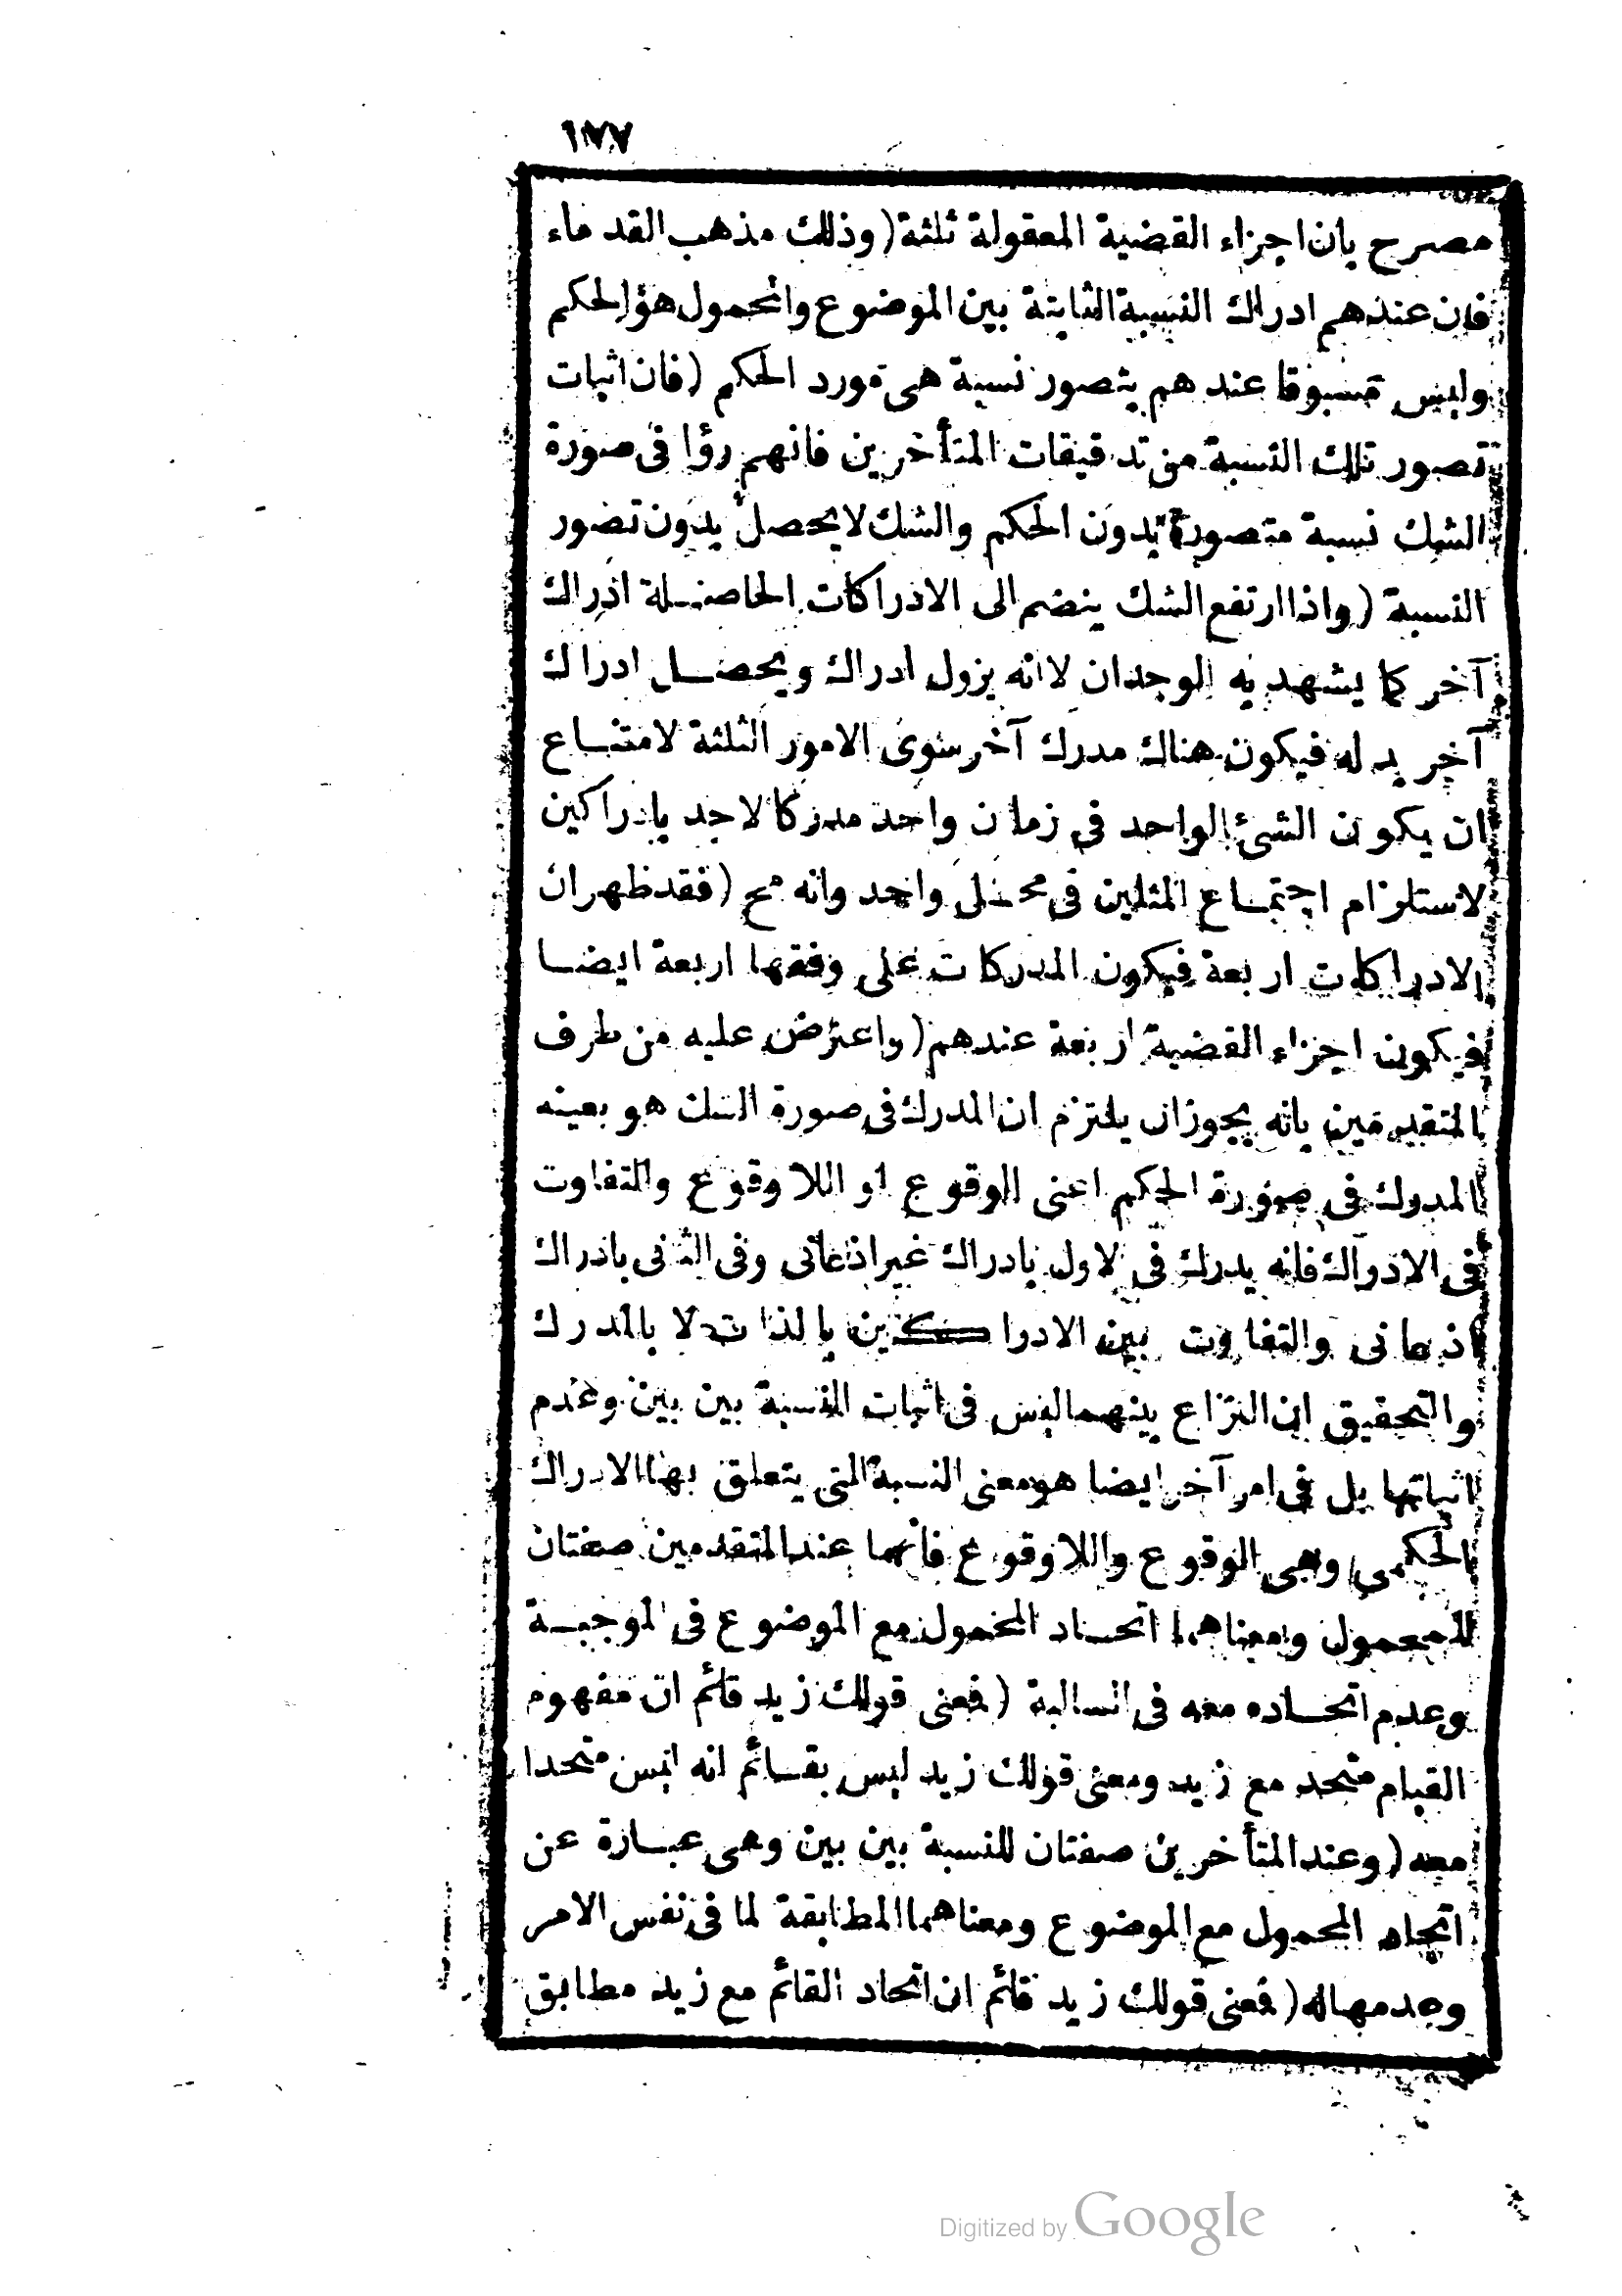 ١٧٧
مصرح بان اجزاء القضية المعقولة ثلثة (وذلك مذهب القدماء
فان عندهم ادراك النسبة الثابتة بين الموضوع والمحمول هو الحكم
وليس مسبوقا عندهم بتصور نسبة هى مورد الحكم (فان اثبات
تصور تلك النسبة من تدقيقات المتأخرين فانهم رؤا فى صورة
الشك نسبة متصورة بدون الحكم والشك لا يحصل بدون تصور
النسبة (واذا ارتفع الشك ينضم الى الادراكات الحاصلة ادراك
آخر كما يشهد به الوجدان لا انه يزول ادراك ويحصل ادراك
آخر بدله فيكون هناك مدرك آخر سوى الامور الثلثة لامتناع
ان يكون الشئ الواحد فى زمان واحد مدركا لاحد بادراكين
لاستلزام اجتماع المثلين فى محل واحد وانه مح (فقد ظهر ان
الادراكات اربعة فيكون المدركات على وفقها اربعة ايضا
فيكون اجزاء القضية اربعة عندهم (واعترض عليه من طرف
المتقدمين بانه يجوز ان يلتزم ان المدرك فى صورة الشك هو بعينه
المدرك فى صورة الحكم اعنى الوقوع او اللا وقوع والتفاوت
فى الادراك فانه يدرك فى الاول بادراك غير اذعانى وفى الثانى بادراك
اذعانى والتفاوت بين الادراكين بالذات لا بالمدرك
والتحقيق ان النزاع بينهما ليس فى اثبات النسبة بين بين وعدم
اثباتها بل فى امر آخر ايضا هو معنى النسبة التى يتعلق بها الادراك
الحكمى وهى الوقوع واللا وقوع فانهما عند المتقدمين صفتان
للمحمول ومعناهما اتحاد المحمول مع الموضوع فى الموجبة
وعدم اتحاده معه فى السالبة (فمعنى قولك زيد قائم ان مفهوم
القيام متحد مع زيد ومعنى قولك زيد ليس بقائم انه ليس متحدا
معه (وعند المتأخرين صفتان للنسبة بين بين وهى عبارة عن
اتحاد المحمول مع الموضوع ومعناهما المطابقة لما فى نفس الامر
وعدمها له (فمعنى قولك زيد قائم ان اتحاد القائم مع زيد مطابق
Digitized by Google